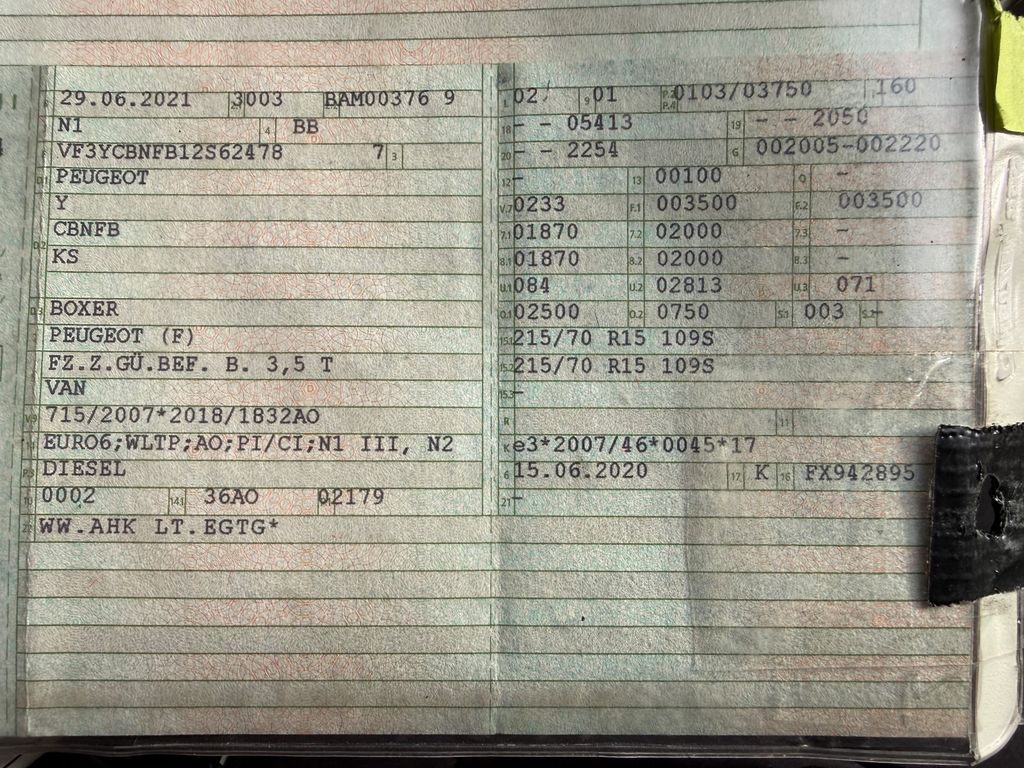 29.06.2021 3003 BAM00376 9
N1 4 BB
VF3YCBNFB12S62478 7 3
PEUGEOT
Y
CBNFB
D.2 KS
D.3 BOXER
PEUGEOT (F)
FZ.Z.GÜ.BEF. B. 3,5 T
VAN
715/2007*2018/1832AO
EURO6;WLTP;AO;PI/CI;N1 III, N2
DIESEL
0002 14.1 36AO 02179
22 WW.AHK LT.EGTG*
L 02 9 01 P.2 P.4 0103/03750 160
18 - - 05413 19 - - 2050
20 - - 2254 G 002005-002220
12 - 13 00100 Q -
V.7 0233 F.1 003500 F.2 003500
7.1 01870 7.2 02000 7.3 -
8.1 01870 8.2 02000 8.3 -
U.1 084 U.2 02813 U.3 071
O.1 02500 O.2 0750 S.1 003 S.2 -
15.1 215/70 R15 109S
15.2 215/70 R15 109S
15.3 -
R 11
K e3*2007/46*0045*17
6 15.06.2020 17 K 16 FX942895
21 -